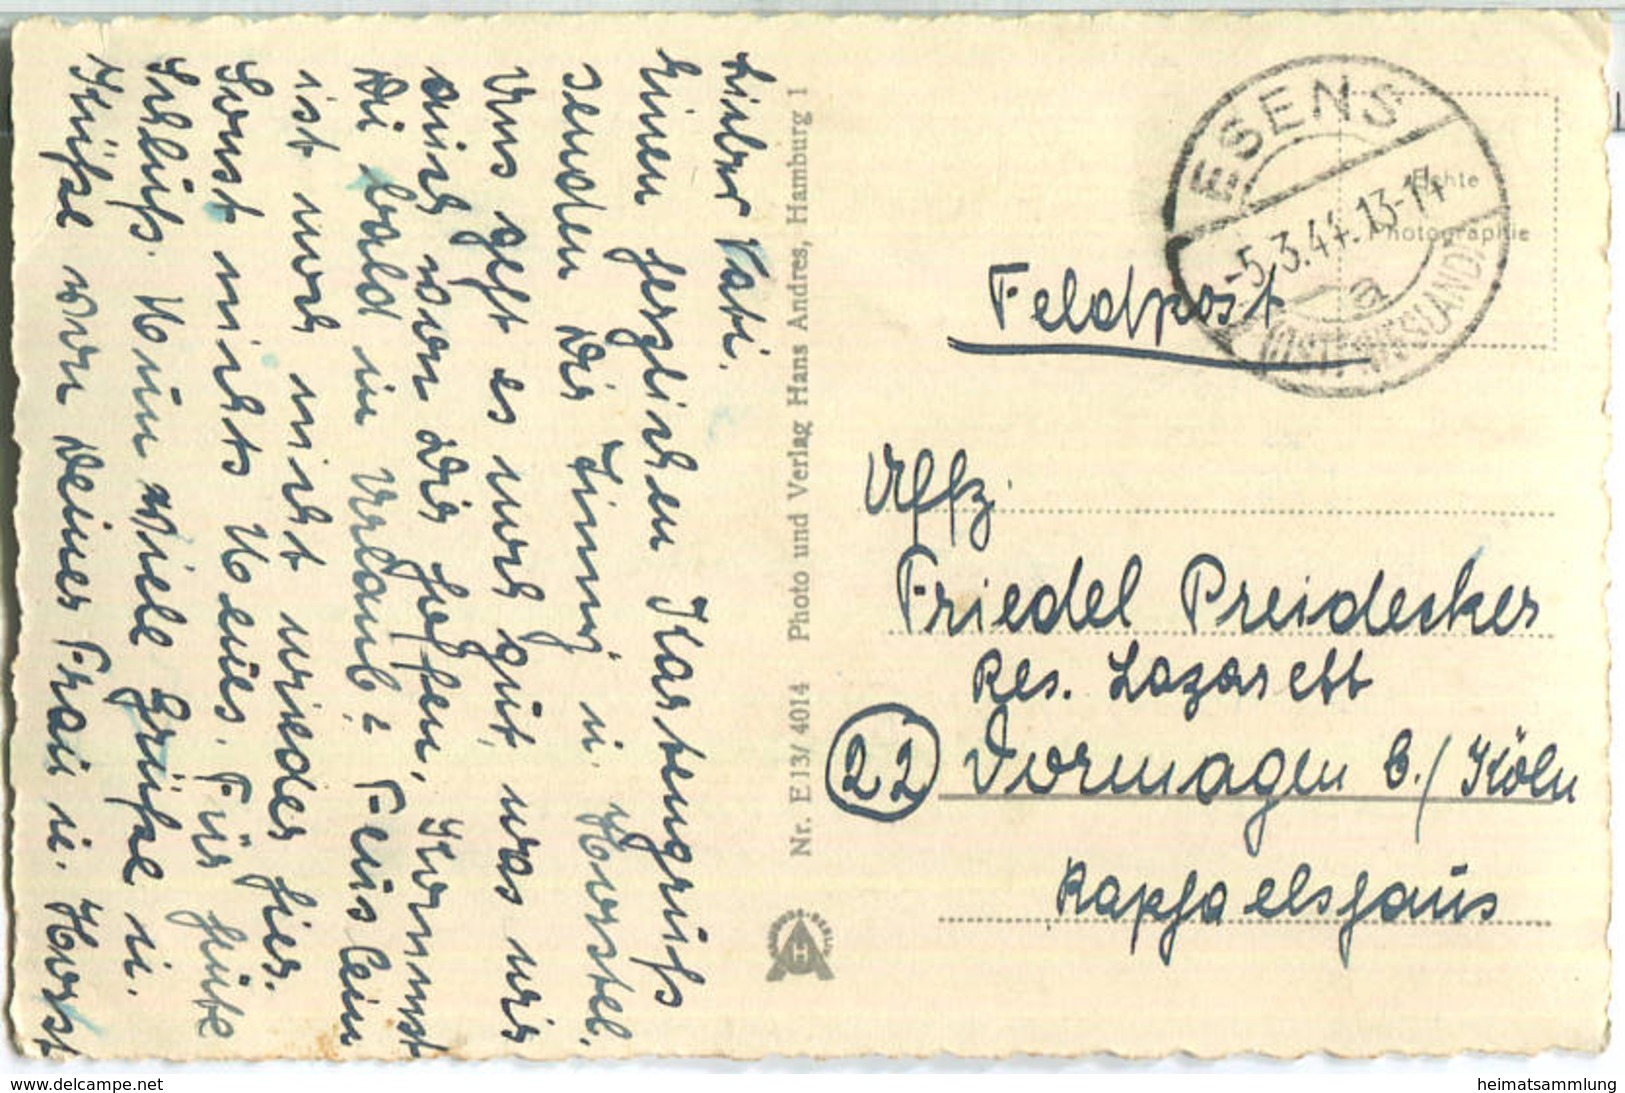 Lieber Vati.
Einen herzlichen Kartengruß
senden Dir Jinny u. Horstel.
Uns geht es noch gut, was wir
auch von Dir hoffen. Kommst
Du bald in Urlaub? Häuslein
ist noch nicht wieder hier.
Sonst nichts Neues. Für heute
Schluß. Nun viele Grüße u.
Küße von Deiner Frau u. Horst
Nr. E 13/4014 Photo und Verlag Hans Andres, Hamburg 1
ESENS
-5.3.44.13-14
a
(OSTFRIESLAND)
Echte
Photographie
Feldpost
Uffz.
Friedel Preidecker
Res. Lazarett
22 Dormagen b./Köln
Raphaelshaus
www.delcampe.net
heimatsammlung